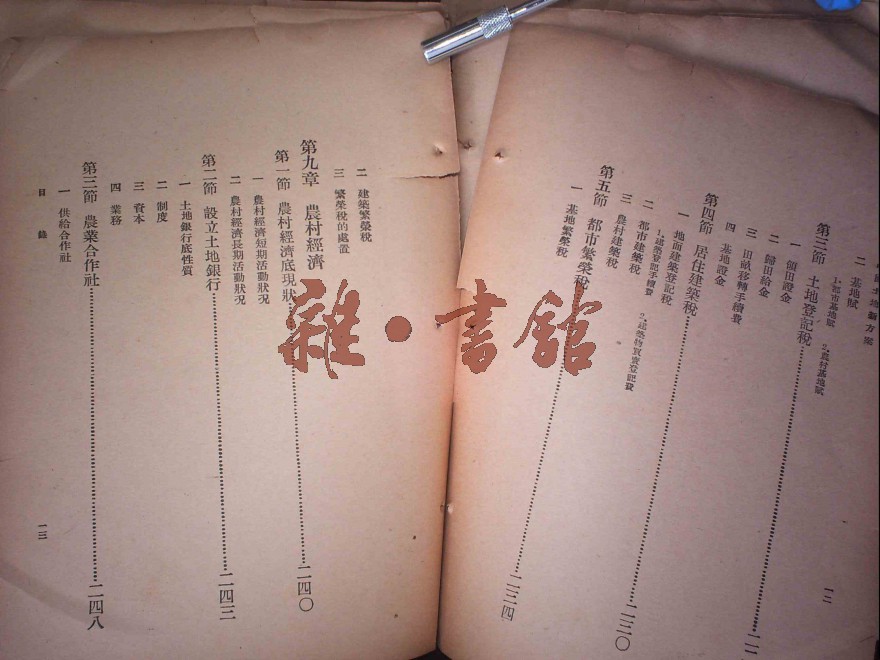 二 基地賦
1.都市基地賦 2.農村基地賦
第三節 土地登記稅
一 領田證金
二 歸田給金
三 田畝移轉手續費
四 基地證金
第四節 居住建築稅……二三〇
一 地面建築登記稅
1.建築登記手續費 2.建築物買賣登記費
二 都市建築稅
三 農村建築稅
第五節 都市繁榮稅……二三四
一 基地繁榮稅
一二
二 建築繁榮稅
三 繁榮稅的處置
第九章 農村經濟
第一節 農村經濟底現狀……二四〇
一 農村經濟短期活動狀況
二 農村經濟長期活動狀況
第二節 設立土地銀行……二四三
一 土地銀行底性質
二 制度
三 資本
四 業務
第三節 農業合作社……二四八
一 供給合作社
目錄 一三
雜·書館